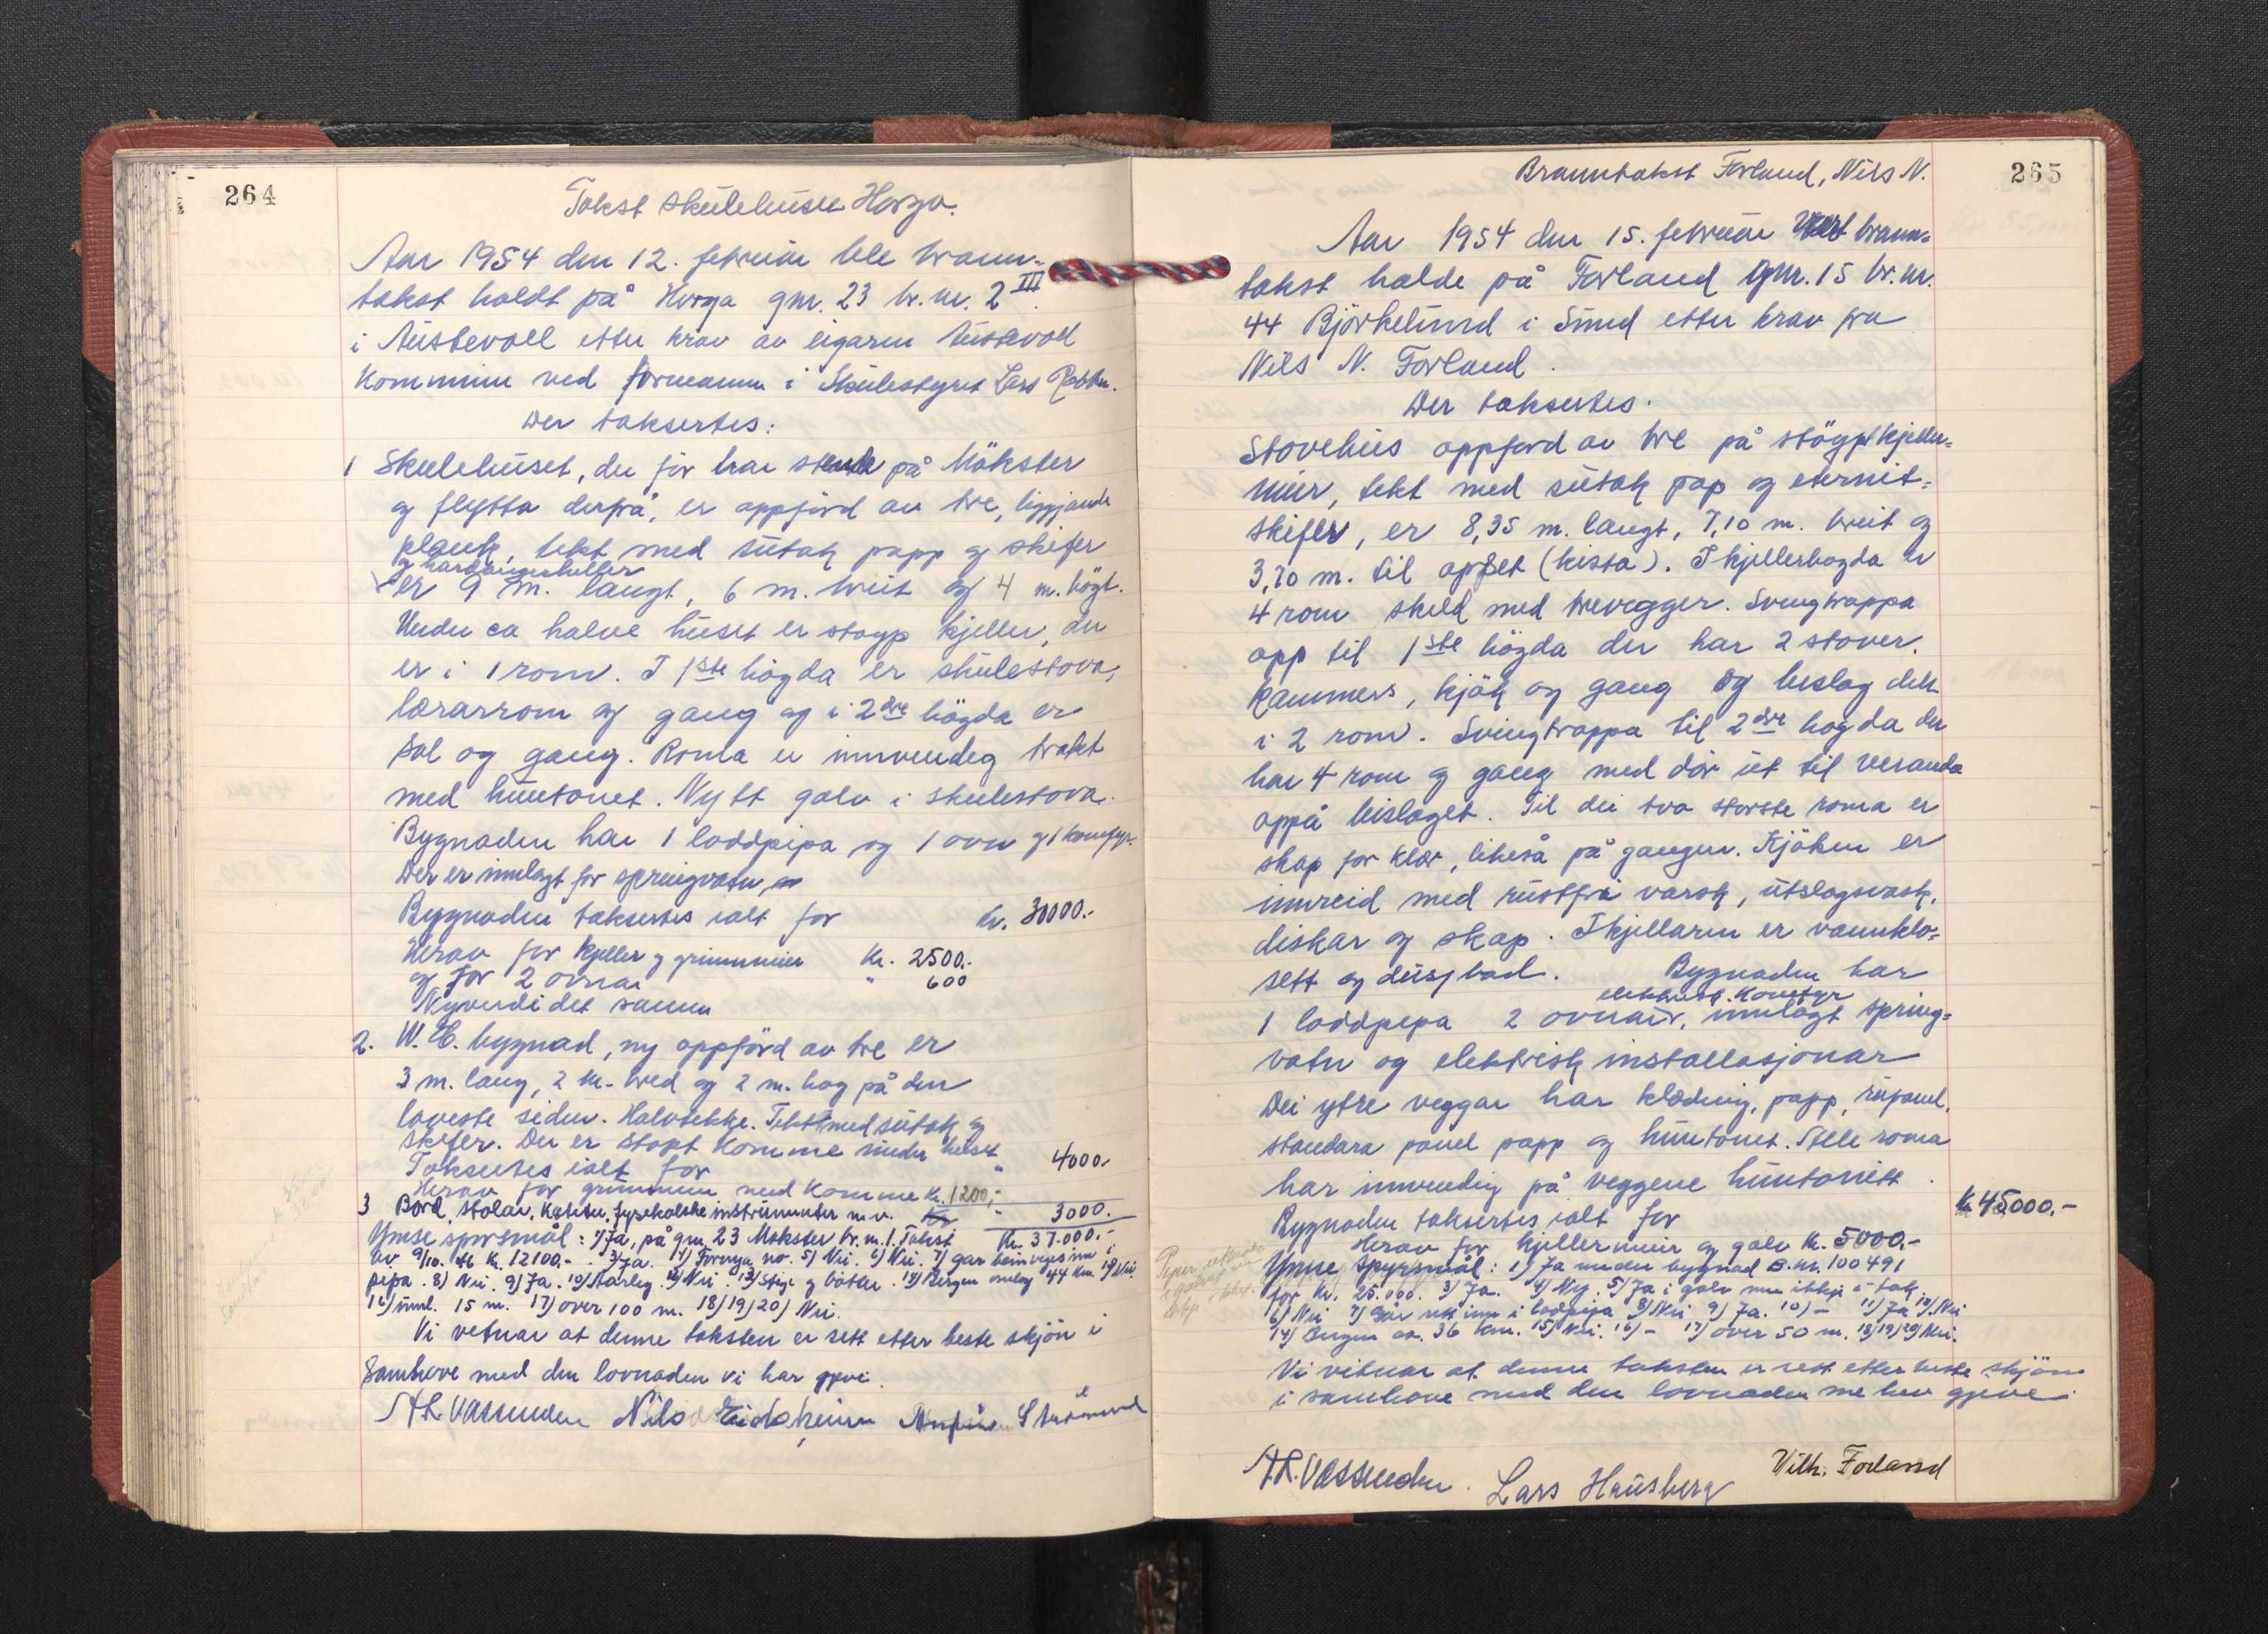 264
Takst skulehuset Horga.
Aar 1954 den 12. februar ble brann-
takst holdt på Horga gnr. 23 br. nr. 2 III
i Austevoll etter krav av eigaren Austevoll
Kommune ved formann i Skulestyret Lars
Der taksertes:
1 Skulehuset, der før har stande på Mökster
og flytta derfrå, er oppförd av tre, liggjande
plank, tekt med sutak papp og skifer
og hardangerheller
er 9 m. langt, 6 m. breit og 4 m. högt.
Under ca halve huset er stöyp kjeller, der
er i 1 rom. I 1ste högda er skulestova,
lærarrom og gang og i 2dre högda er
sal og gang. Roma er innvendeg trekt
med huntonet. Nytt golv i skulestova.
Bygnaden har 1 loddpipa og 1 ovn og 1 komfyr.
Der er innlagt for springvatn
Bygnaden taksertes ialt for kr. 30000.-
Herav for kjeller og grunnmur kr. 2500.-
og for 2 ovnar " 600
Nyverdi det samme
2. W.C. bygnad, ny oppförd av tre er
3 m. lang, 2 m. bred og 2 m. hog på den
laveste siden. Halvtekke. Tekt med sutak og
skifer. Der er stöpt komme under huset
Taksertes ialt for " 4000.-
Herav for grunnmur med komme kr. 1200,-
3 Bord, stolar, kateter, fysekalske instrumenter m.v. - 3000.-
Ymse spörsmål: 1) Ja, på gnr. 23 Mökster br. nr. 1. Takst kr. 37.000.-
av 9/10. 46 kr. 12100.- . 3) Ja. 4) Fornya no. 5) Nei. 6) Nei. 7) gar beinveges inn i
pipa. 8) Nei. 9) Ja. 10) Aarleg. 12) Nei. 13) Stige og bötter. 14) Bergen omlag 44 km. 15) Nei
16) innl. 15 m. 17) over 100 m. 18) 19) 20) Nei.
Vi vetnar at denne taksten er sett etter beste skjön i
Samhove med den lovnaden vi har gjeve.
A.L. Vassenden Nils Eidsheim Strömmen
265
Branntakst Forland, Nils N.
Aar 1954 den 15. februar Vert brann-
takst halde på Forland Gnr. 15 br. nr.
44 Björkelund i Sund etter krav fra
Nils N. Forland.
Der taksertes.
Stovehus oppförd av tre på stöypt kjeller-
mur, tekt med sutak pap og eternit-
skifer, er 8,35 m. langt, 7,10 m. breit og
3,70 m. til opset (kista). I kjellerhogda er
4 rom skild med trevegger. Svingtrappa
opp til 1ste högda der har 2 stover.
kammers, kjök og gang og beslag delt
i 2 rom. Svingtrappa til 2dre hogda der
har 4 rom og gang med dör ut til veranda
oppå bislaget. Til dei tvo storste roma er
skap for klær, likeså på gangen. Kjöken er
innreid med rustfri varsk, utslagsvask,
diskar og skap. I kjellaren er vannklo-
sett og dusjbad. Bygnaden har
elektrisk. Komfyr
1 loddpipa 2 ovnar, innlagt spring-
vatn og elektrisk installasjonar
Dei ytre veggar har klædning, papp, rupanel,
standara panel papp og huntonet. Alle roma
har innvendig på veggene huntonitt.
Bygnaden taksertes ialt for kr 45000.-
Herav for kjellermur og golv kr. 5000.-
Ymse Spyrsmål: 1) Ja under bygnad B.nr. 100491
for kr. 25.000. 3) Ja. 4) Ny. 5) Ja i golv men ikkje i tak.
6) Nei 7) Går rett inn i lodpipa 8) Nei 9) Ja. 10) - 11) Ja 12) Nei
14) Bergen ca. 36 km. 15) Nei. 16) - 17) over 50 m. 18) 19) 20) Nei.
Vi vitnar at denne taksten er sett etter beste skjön
i samhove med den lovnaden me hev gjeve.
A.L. Vassenden. Lars Hausberg Vilh. Forland